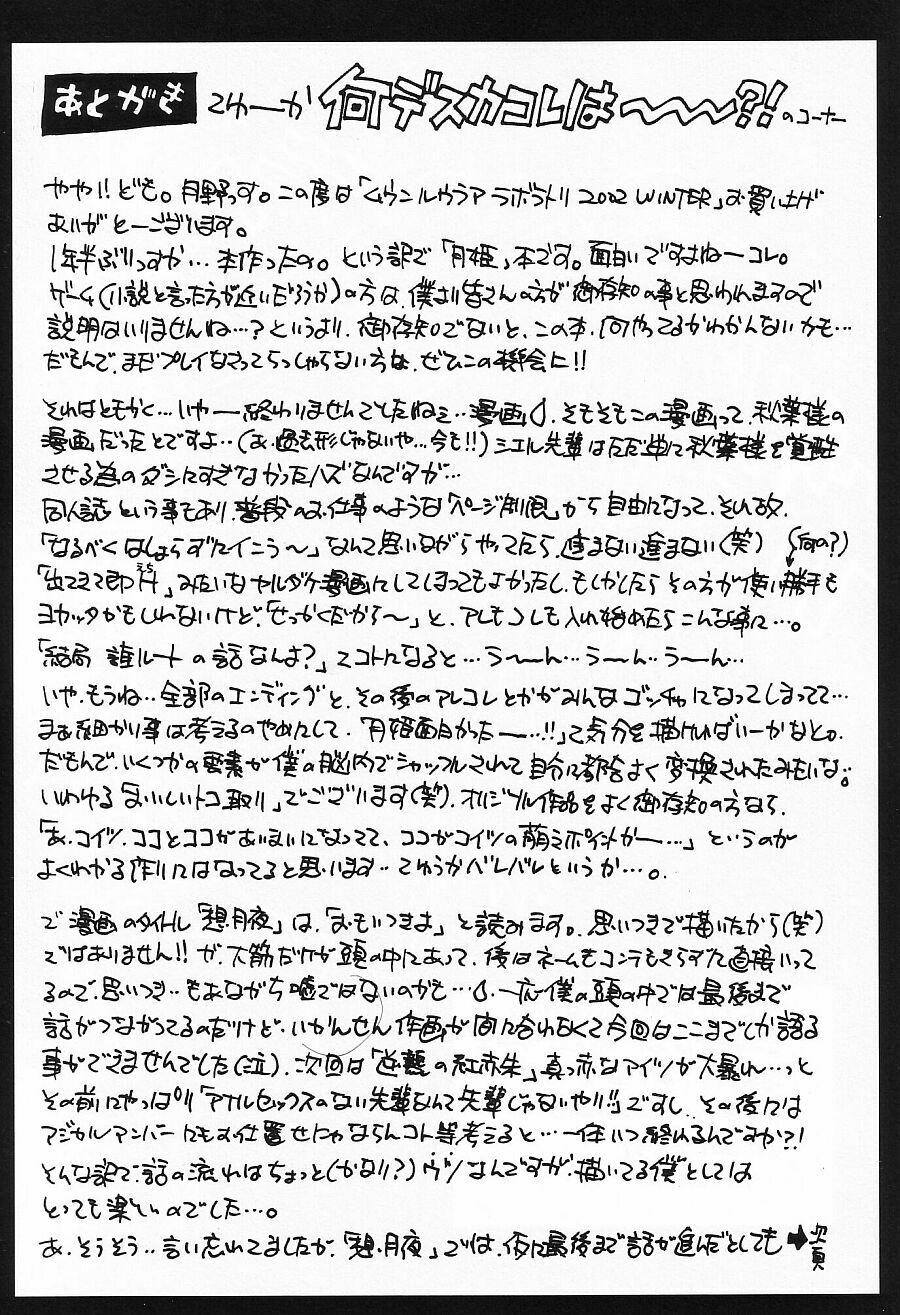 あとがき てゆーか 何デスカコレは〜〜〜?! のコーナー
やや!!ども。月野っす。この度は「ムウンルウラア ラボラトリ 2002 WINTER」お買い上げ
ありがとーございます。
1年半ぶりっすか…本作ったの。という訳で「月姫」本です。面白いですよねーコレ。
ゲーム(小説と言った方が近いだろうか)の方は、僕より皆さんの方が御存知の事と思われますので
説明はいりませんね…?というより、御存知でないと、この本、何やってるかわかんないかも…
だもんで、まだプレイなさってらっしゃらない方は、ぜひこの機会に!!
それはともかく…いやー終わりませんでしたねミ…漫画。そもそもこの漫画って、秋葉様の
漫画だったとですよ…(あ、過去形じゃないや…今も!!)シエル先輩はただ単に秋葉様を覚醒
させる為のダシにすぎなかったハズなんですが…
同人誌という事もあり、普段のお仕事のような「ページ制限」から自由になって、それ故、
「なるべくはしょらずにイこう〜」なんて思いながらやってたら、進まない進まない(笑) (何の?)
「出てきて即」みたいなヤルダケ漫画にしてしまってもよかったし、もしかしたらその方が使い勝手も
ヨカッタかもしれないけど、「せっかくだから〜」と、アレもコレも入れ始めたらこんな事に…。
「結局 誰ルートの話なんよ?」てコトになると…う〜ん…う〜ん…う〜ん…
いや、もうね…全部のエンディングと、その後のアレコレとかがみんなゴッチャになってしまってて…
まぁ細かい事は考えるのやめにして、「月姫面白かったー…!!」て気分を描ければいーかなと。
だもんで、いくつかの要素が僕の脳内でシャッフルされて自分に都合よく変換されたみたいな。
いわゆる「おいしいトコ取り」でございます(笑)。オリジナル作品をよく御存知の方なら、
「あ、コイツ、ココとココがあいまいになってて、ココがコイツの萌えポイントかー…」というのが
よくわかる作りにはなってると思います…てゆうかバレバレというか…。
で 漫画のタイトル「想月夜」は、「おもいつきよ」と読みます。思いつきで描いたから(笑)
ではありません!!が、大筋だけが頭の中にあって、後はネームもコンテもきらずに直接いって
るので、思いつき…もあながち嘘ではないのかも…。一応僕の頭の中では最後まで
話がつながってるのだけど、いかんせん作画が間に合わなくて今回はここまでしか語る
事ができませんでした(泣)。次回は「逆襲の紅赤朱」真っ赤なアイツが大暴れ…っと
その前にやっぱり「アナルセックスのない先輩なんて先輩じゃないやい!!」ですし、その後には
アジカルアンバーにもお仕置せにゃならんコト等考えると…一体いつ終わるんですか?!
そんな訳で、話の流れはちょっと(かなり?)ウツなんですが、描いてる僕としては
とっても楽しいのでした…。
あ、そうそう…言い忘れてましたが、「想月夜」では、仮に最後まで話が進んだとしても ➡次頁